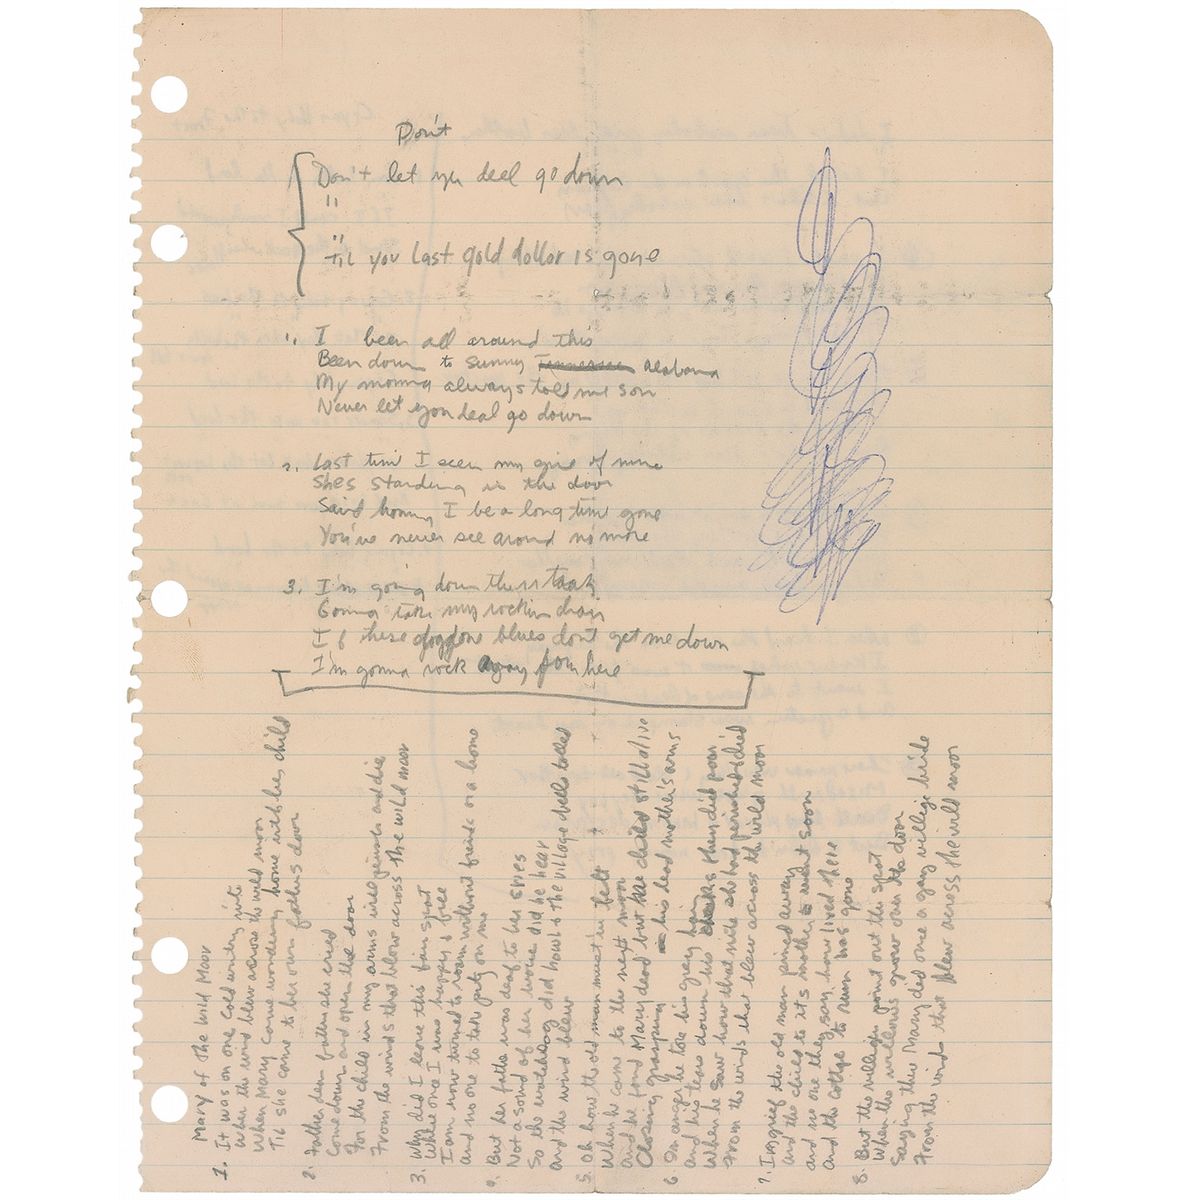 Don't
Don't let you deal go down
"
"
til you last gold dollar is gone
1. I been all around this
Been down to sunny Tennessee alabama
My momma always told me son
Never let you deal go down
2. Last time I seen my girl of mine
Shes standing in the door
Said honey I be a long time gone
You've never see around no more
3. I'm going down the track
Gonna take my rockin chair
If these doggone blues dont get me down
I'm gonna rock away from here
Mary of the Wild Moor
1. It was on one cold wintry nite
When the wind blew across the wild moor
When Mary come wondering home with her child
Til she came to her own fathers door
2. Father dear father she cried
Come down and open the door
For the child in my arms will perish and die
From the winds that blow across the wild moor
3. Why did I leave this fair spot
Where once I was happy & free
I am now turned to roam without friends or a home
and no one to take pity on me
4. But her father was deaf to her cries
Not a sound of her voice did he hear
So the watchdog did howl & the village bells tolled
and the wind blew
5. Oh how the old man must've felt
When he came to the next morn
And he found Mary dead but the child still alive
Closing grasping in his dead mother's arms
6 In anger he tore his gray hair
and his tears down his cheeks they did pour
When he saw how that nite she had perished & died
From the winds that blew across the wild moor
7. In grief the old man pined away
and the child to it's mother went soon
and no one they say, have lived there
And the cottage to ruin has gone
8. But the villigers point out the spot
When the willows grow over the door
Saying there Mary died once a gay village bride
From the winds that blew across the wild moor